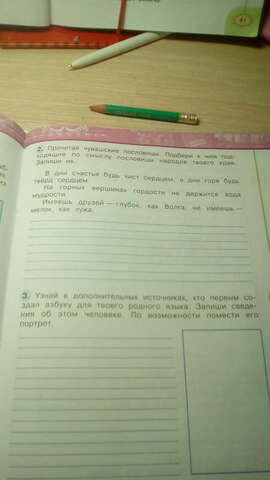 41
2. Прочитай чувашские пословицы. Подбери к ним под-
ходящие по смыслу пословицы народов твоего края.
Запиши их.
В дни счастья будь чист сердцем, в дни горя будь
твёрд сердцем.
На горных вершинах гордости не держится вода
мудрости.
Имеешь друзей — глубок, как Волга, не имеешь —
мелок, как лужа.
3. Узнай в дополнительных источниках, кто первым со-
здал азбуку для твоего родного языка. Запиши сведе-
ния об этом человеке. По возможности помести его
портрет.